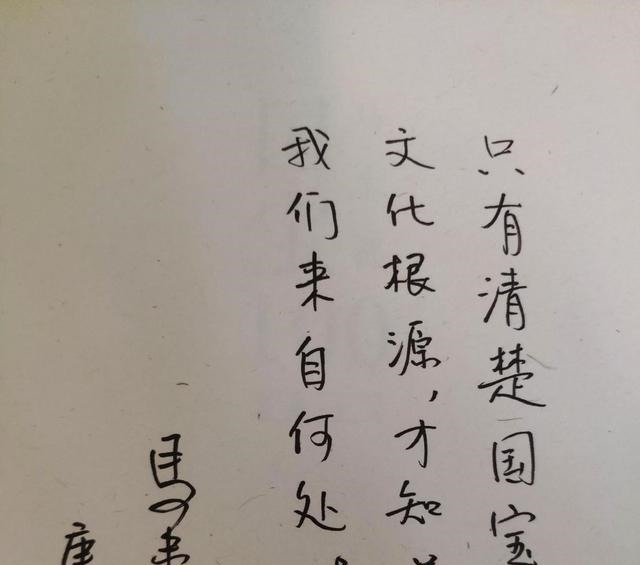 只有清楚国宝
文化根源,才知
我们来自何处
马未
庚